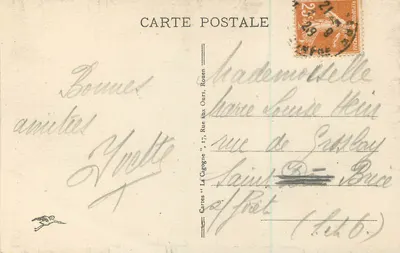 CARTE POSTALE
Bonnes
amitiés
Yvette
Cartes "La Cigogne", 17, Rue aux Ours, Rouen
25c
Mademoiselle
Marie Louise
rue de
Saint Brice
s/ forêt
(S. et O.)